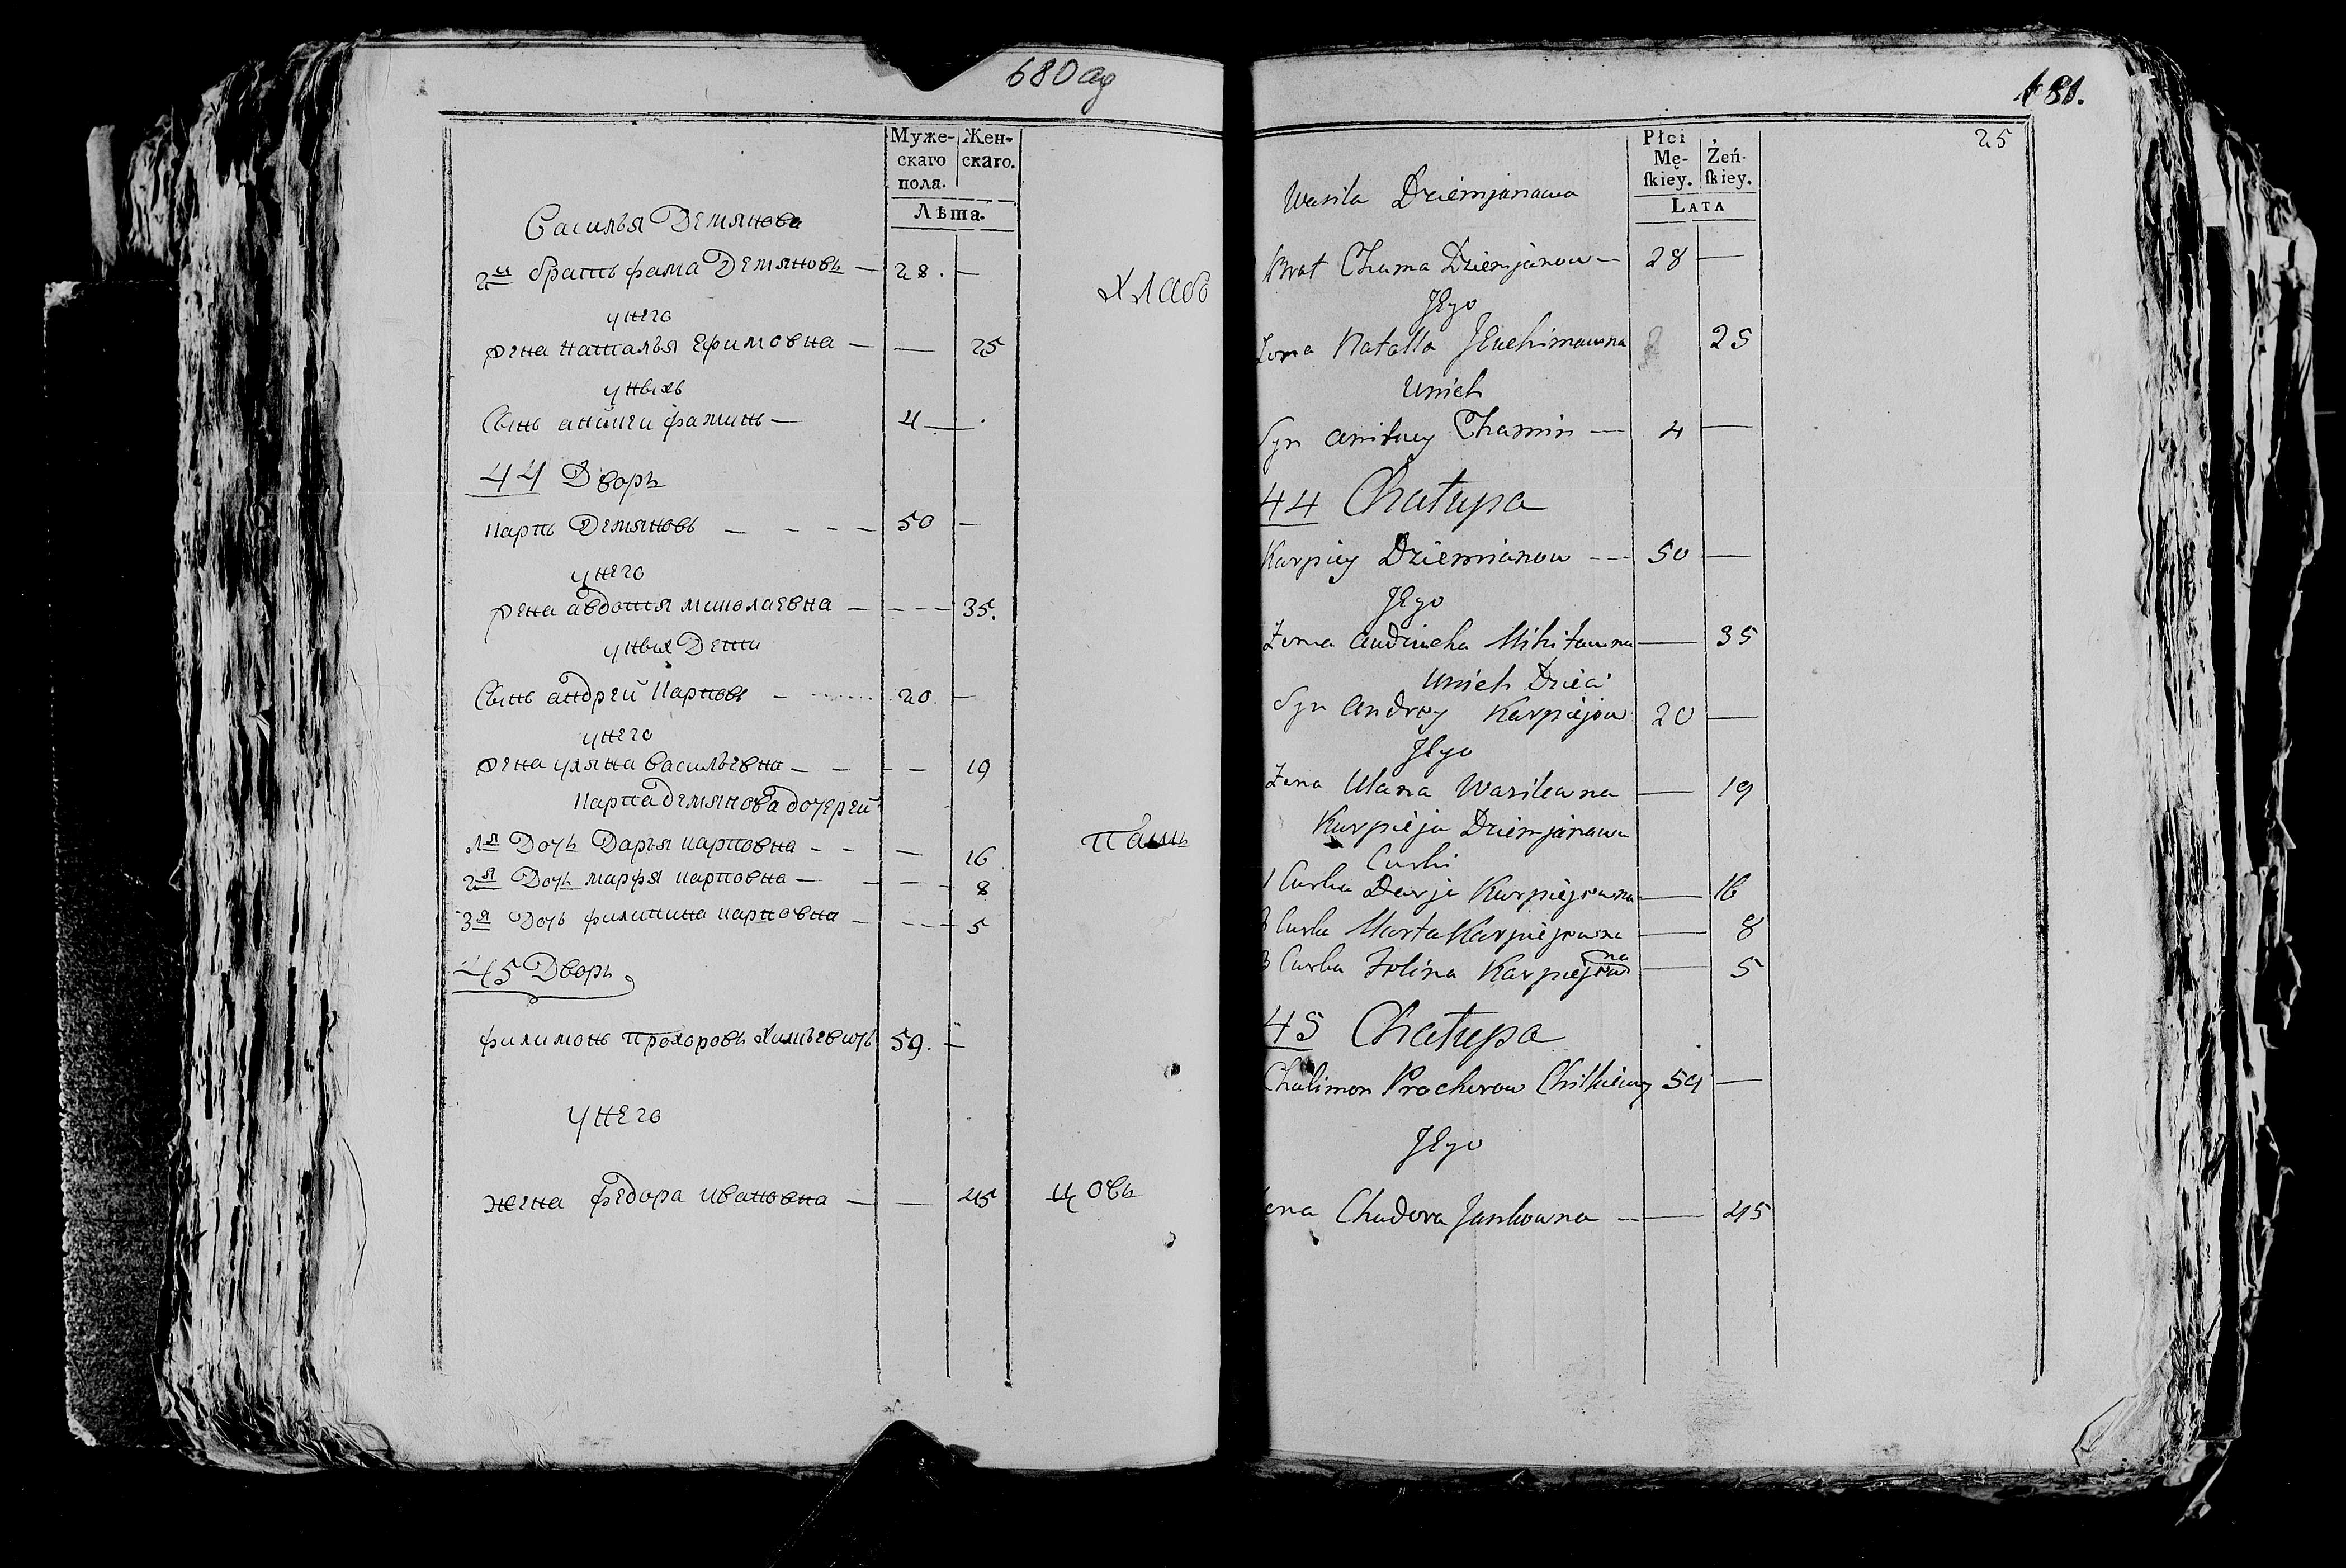 680 об
Муже- Жен-
скаго скаго.
пола.
Лѣта.
Василья Демянова
2й братъ фама Демяновъ — 28. —
у него
жена наталья Ефимовна — — 25
Хлабо
у ныхъ
Сынъ аникеи фаминъ — 4 — .
44 Дворъ
карпъ Демяновъ — — — — 50 —
у него
жена авдотя миколаевна — — — — 35.
у ных Дети
Сынъ андрей Карповъ — 20. —
у него
жена уляна васильевна — — — — 19
Карпа демянова дочерей
1я Дочь Дарья карповна — — — 16
панъ
2я Дочь марфя карповна — — — — 8
3я Дочь филипина карповна — — — 5
45 Дворъ
филимонъ прохоровъ Хилкевичъ 59. —
у него
жена федора ивановна — — 45
цовъ
681.
25
Płci
Mę- Żeń-
skiey. skiey.
LATA
Wasila Dziemjanawa
Brat Chama Dziemjanow — 28 —
Jego
Żona Natalla Jeuchimawna 25
Unich
Syn Chamin — 4 —
44 Chałupa
Karpiey Dziemianow — — 50 —
Jego
Żona Audziucha Mikitawna — 35
Unich Dzieci
Syn Andrey Karpiejow 20 —
Jego
Żena Ulana Wasilewna — 19
Karpieja Dziemjanawa
Curki
1 Curka Darja Karpiejowna — 16
2 Curka Marta Karpiejowna — 8
3 Curka Karpiejowna — 5
45 Chałupa
Chalimon Procherow Chilkiewicz 59 —
Jego
Żena Chadora Jankowna — — 45